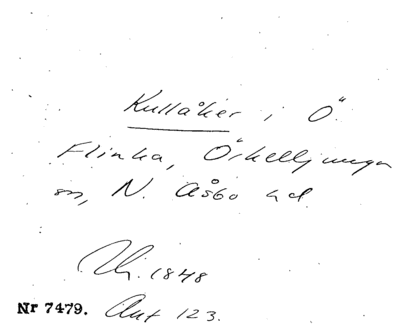 Kullåker i Ö.
Flinka, Örkelljunga
sn, N. Åsbo hd.
1848
Nr 7479. Ant 123.